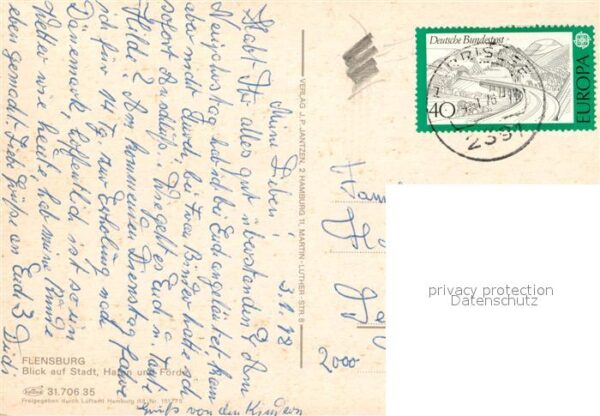 3.1.78
Meine Lieben!
Habt Ihr alles gut überstanden? Am
Neujahrstag hab ich bei Euch angeläutet kam
aber nicht durch, bei Frau Binder hätte ich
sofort Anschluß. Wie geht es Euch u. Tante
Hilde? Am kommenden Dienstag fahre
ich für 14 Tg. zur Erholung nach
Dänemark, hoffentlich ist so ein
Wetter wie heute, hab meine Runde
eben gemacht. Liebe Grüße an Euch 3 Didi
Grüße von den Kindern
FLENSBURG
Blick auf Stadt, Hafen und Förde
31.706 35
Freigegeben durch Luftamt Hamburg
VERLAG J. P. JANTZEN, 2 HAMBURG 11, MARTIN-LUTHER-STR. 8
Deutsche Bundespost
40
EUROPA
HARRISLEE
2391
2000
privacy protection
Datenschutz